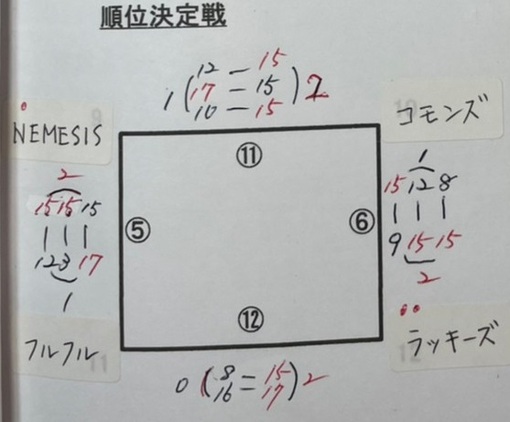 順位決定戦
12 — 15
1 ( 17 = 15 ) 2
10 — 15
NEMESIS
コモンズ
⑪
2
1
15 15 15
15 12 8
⑤
⑥
| | |
| | |
12 3 17
9 15 15
1
2
⑫
フルフル
ラッキーズ
11
0 ( 8 = 15 ) 2
16 = 17